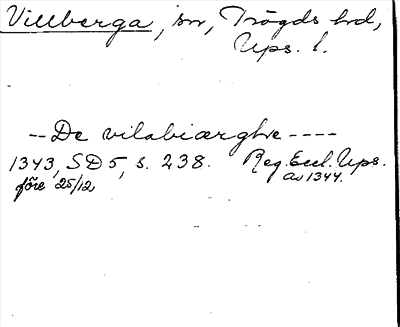 Villberga, sn, Trögds hd,
Ups. l.
-- De vilabiærghe ----
1343, SD 5, s. 238. Reg. Eccl. Ups.
före 25/12 av 1344.